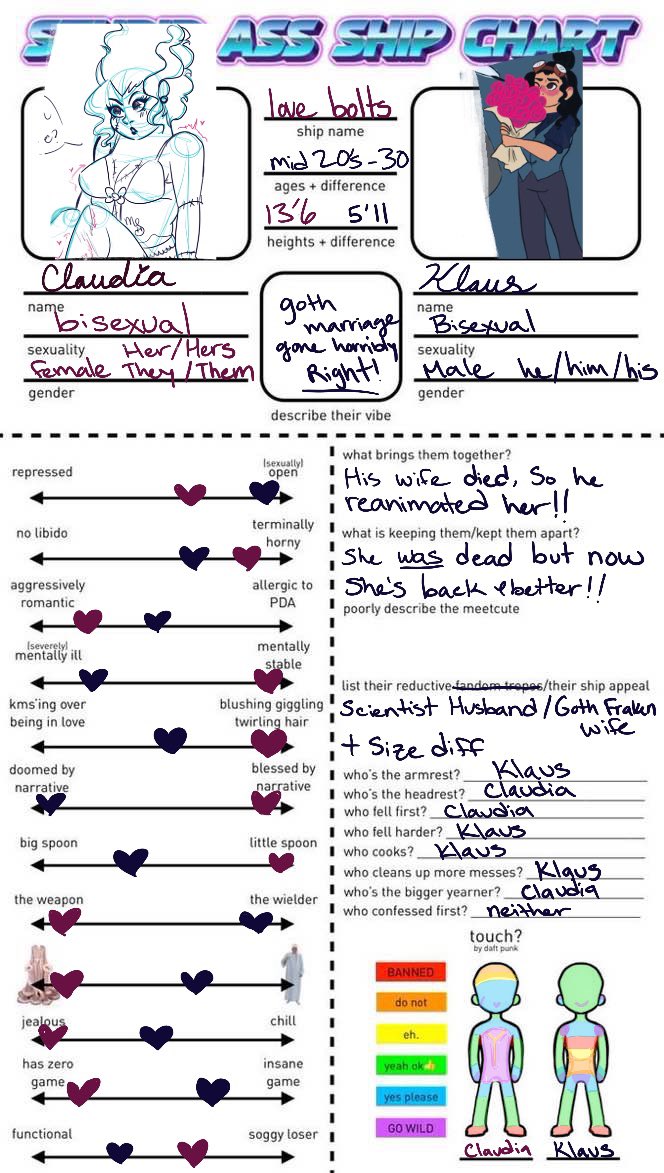 ASS SHIP CHART
love bolts
ship name
mid 20's - 30
ages + difference
13'6 5'11
heights + difference
Claudia
name
bisexual
sexuality
Her/Hers
Female They/Them
gender
goth
marriage
gone horribly
Right!
describe their vibe
Klaus
name
Bisexual
sexuality
Male he/him/his
gender
repressed
(sexually)
open
no libido
terminally
horny
aggressively
romantic
allergic to
PDA
(severely)
mentally ill
mentally
stable
kms'ing over
being in love
blushing giggling
twirling hair
doomed by
narrative
blessed by
narrative
big spoon
little spoon
the weapon
the wielder
jealous
chill
has zero
game
insane
game
functional
soggy loser
what brings them together?
His wife died, So he
reanimated her!!
what is keeping them/kept them apart?
She was dead but now
She's back & better!!
poorly describe the meetcute
list their reductive fandom tropes/their ship appeal
Scientist Husband/Goth Fraken
wife
+ Size diff
who's the armrest? Klaus
who's the headrest? Claudia
who fell first? Claudia
who fell harder? Klaus
who cooks? Klaus
who cleans up more messes? Klaus
who's the bigger yearner? Claudia
who confessed first? neither
touch?
by daft punk
BANNED
do not
eh.
yeah ok👍
yes please
GO WILD
Claudia
Klaus